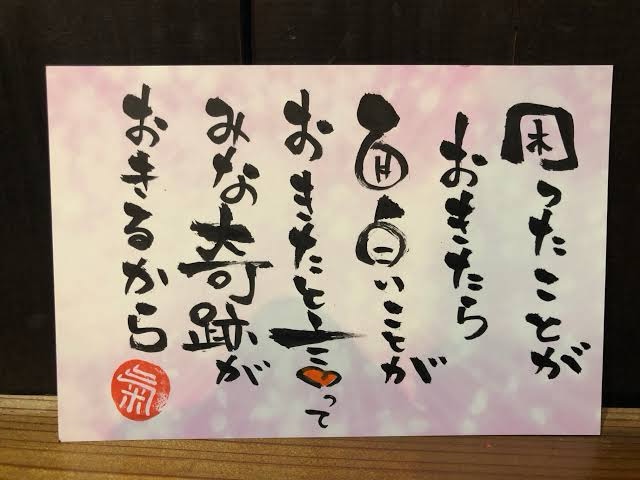 困ったことが
おきたら
面白いことが
おきたと言って
みな奇跡が
おきるから
氣